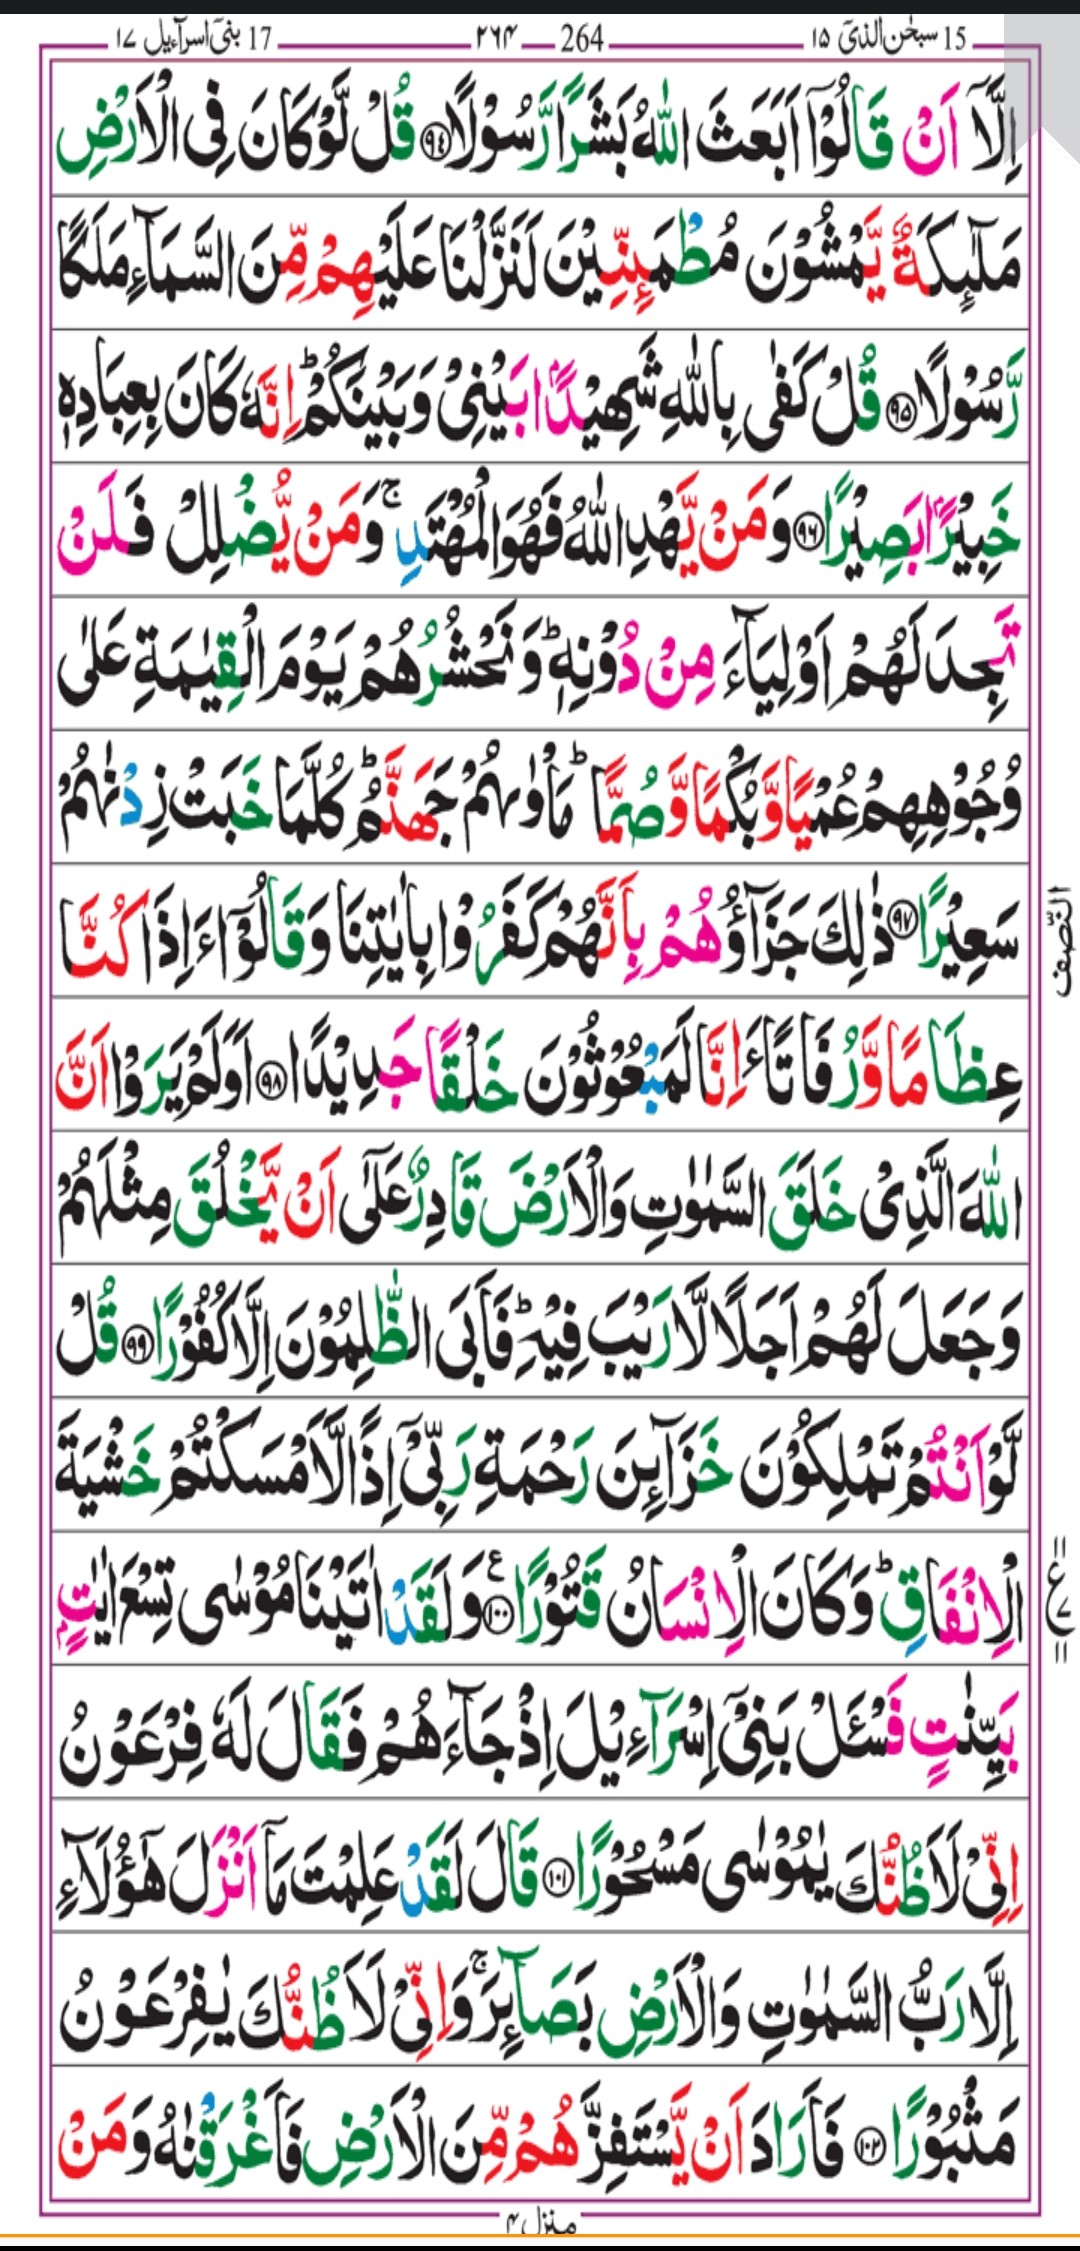 15 سبحٰن الذیٓ ۱۵ 264 ۲۶۴ 17 بنیٓ اسرآءیل ۱۷
اِلَّاۤ اَنْ قَالُوْۤا اَبَعَثَ اللّٰهُ بَشَرًا رَّسُوْلًا ۹۴ قُلْ لَّوْ كَانَ فِی الْاَرْضِ
مَلٰٓىِٕكَةٌ یَّمْشُوْنَ مُطْمَىِٕنِّیْنَ لَنَزَّلْنَا عَلَیْهِمْ مِّنَ السَّمَآءِ مَلَكًا
رَّسُوْلًا ۹۵ قُلْ كَفٰی بِاللّٰهِ شَهِیْدًۢا بَیْنِیْ وَ بَیْنَكُمْ ؕ اِنَّهٗ كَانَ بِعِبَادِهٖ
خَبِیْرًۢا بَصِیْرًا ۹۶ وَ مَنْ یَّهْدِ اللّٰهُ فَهُوَ الْمُهْتَدِ ۚ وَ مَنْ یُّضْلِلْ فَلَنْ
تَجِدَ لَهُمْ اَوْلِیَآءَ مِنْ دُوْنِهٖ ؕ وَ نَحْشُرُهُمْ یَوْمَ الْقِیٰمَةِ عَلٰی
وُجُوْهِهِمْ عُمْیًا وَّ بُكْمًا وَّ صُمًّا ؕ مَاْوٰىهُمْ جَهَنَّمُ ؕ كُلَّمَا خَبَتْ زِدْنٰهُمْ
سَعِیْرًا ۹۷ ذٰلِكَ جَزَآؤُهُمْ بِاَنَّهُمْ كَفَرُوْا بِاٰیٰتِنَا وَ قَالُوْۤا ءَاِذَا كُنَّا
النّصف
عِظَامًا وَّ رُفَاتًا ءَاِنَّا لَمَبْعُوْثُوْنَ خَلْقًا جَدِیْدًا ۹۸ اَوَ لَمْ یَرَوْا اَنَّ
اللّٰهَ الَّذِیْ خَلَقَ السَّمٰوٰتِ وَ الْاَرْضَ قَادِرٌ عَلٰۤی اَنْ یَّخْلُقَ مِثْلَهُمْ
وَ جَعَلَ لَهُمْ اَجَلًا لَّا رَیْبَ فِیْهِ ؕ فَاَبَی الظّٰلِمُوْنَ اِلَّا كُفُوْرًا ۹۹ قُلْ
لَّوْ اَنْتُمْ تَمْلِكُوْنَ خَزَآىِٕنَ رَحْمَةِ رَبِّیْۤ اِذًا لَّاَمْسَكْتُمْ خَشْیَةَ
الْاِنْفَاقِ ؕ وَ كَانَ الْاِنْسَانُ قَتُوْرًا ۱۰۰ ع وَ لَقَدْ اٰتَیْنَا مُوْسٰی تِسْعَ اٰیٰتٍۭ
بَیِّنٰتٍ فَسْـَٔلْ بَنِیْۤ اِسْرَآءِیْلَ اِذْ جَآءَهُمْ فَقَالَ لَهٗ فِرْعَوْنُ
اِنِّیْ لَاَظُنُّكَ یٰمُوْسٰی مَسْحُوْرًا ۱۰۱ قَالَ لَقَدْ عَلِمْتَ مَاۤ اَنْزَلَ هٰۤؤُلَآءِ
اِلَّا رَبُّ السَّمٰوٰتِ وَ الْاَرْضِ بَصَآىِٕرَ ۚ وَ اِنِّیْ لَاَظُنُّكَ یٰفِرْعَوْنُ
مَثْبُوْرًا ۱۰۲ فَاَرَادَ اَنْ یَّسْتَفِزَّهُمْ مِّنَ الْاَرْضِ فَاَغْرَقْنٰهُ وَ مَنْ
منزل ۴